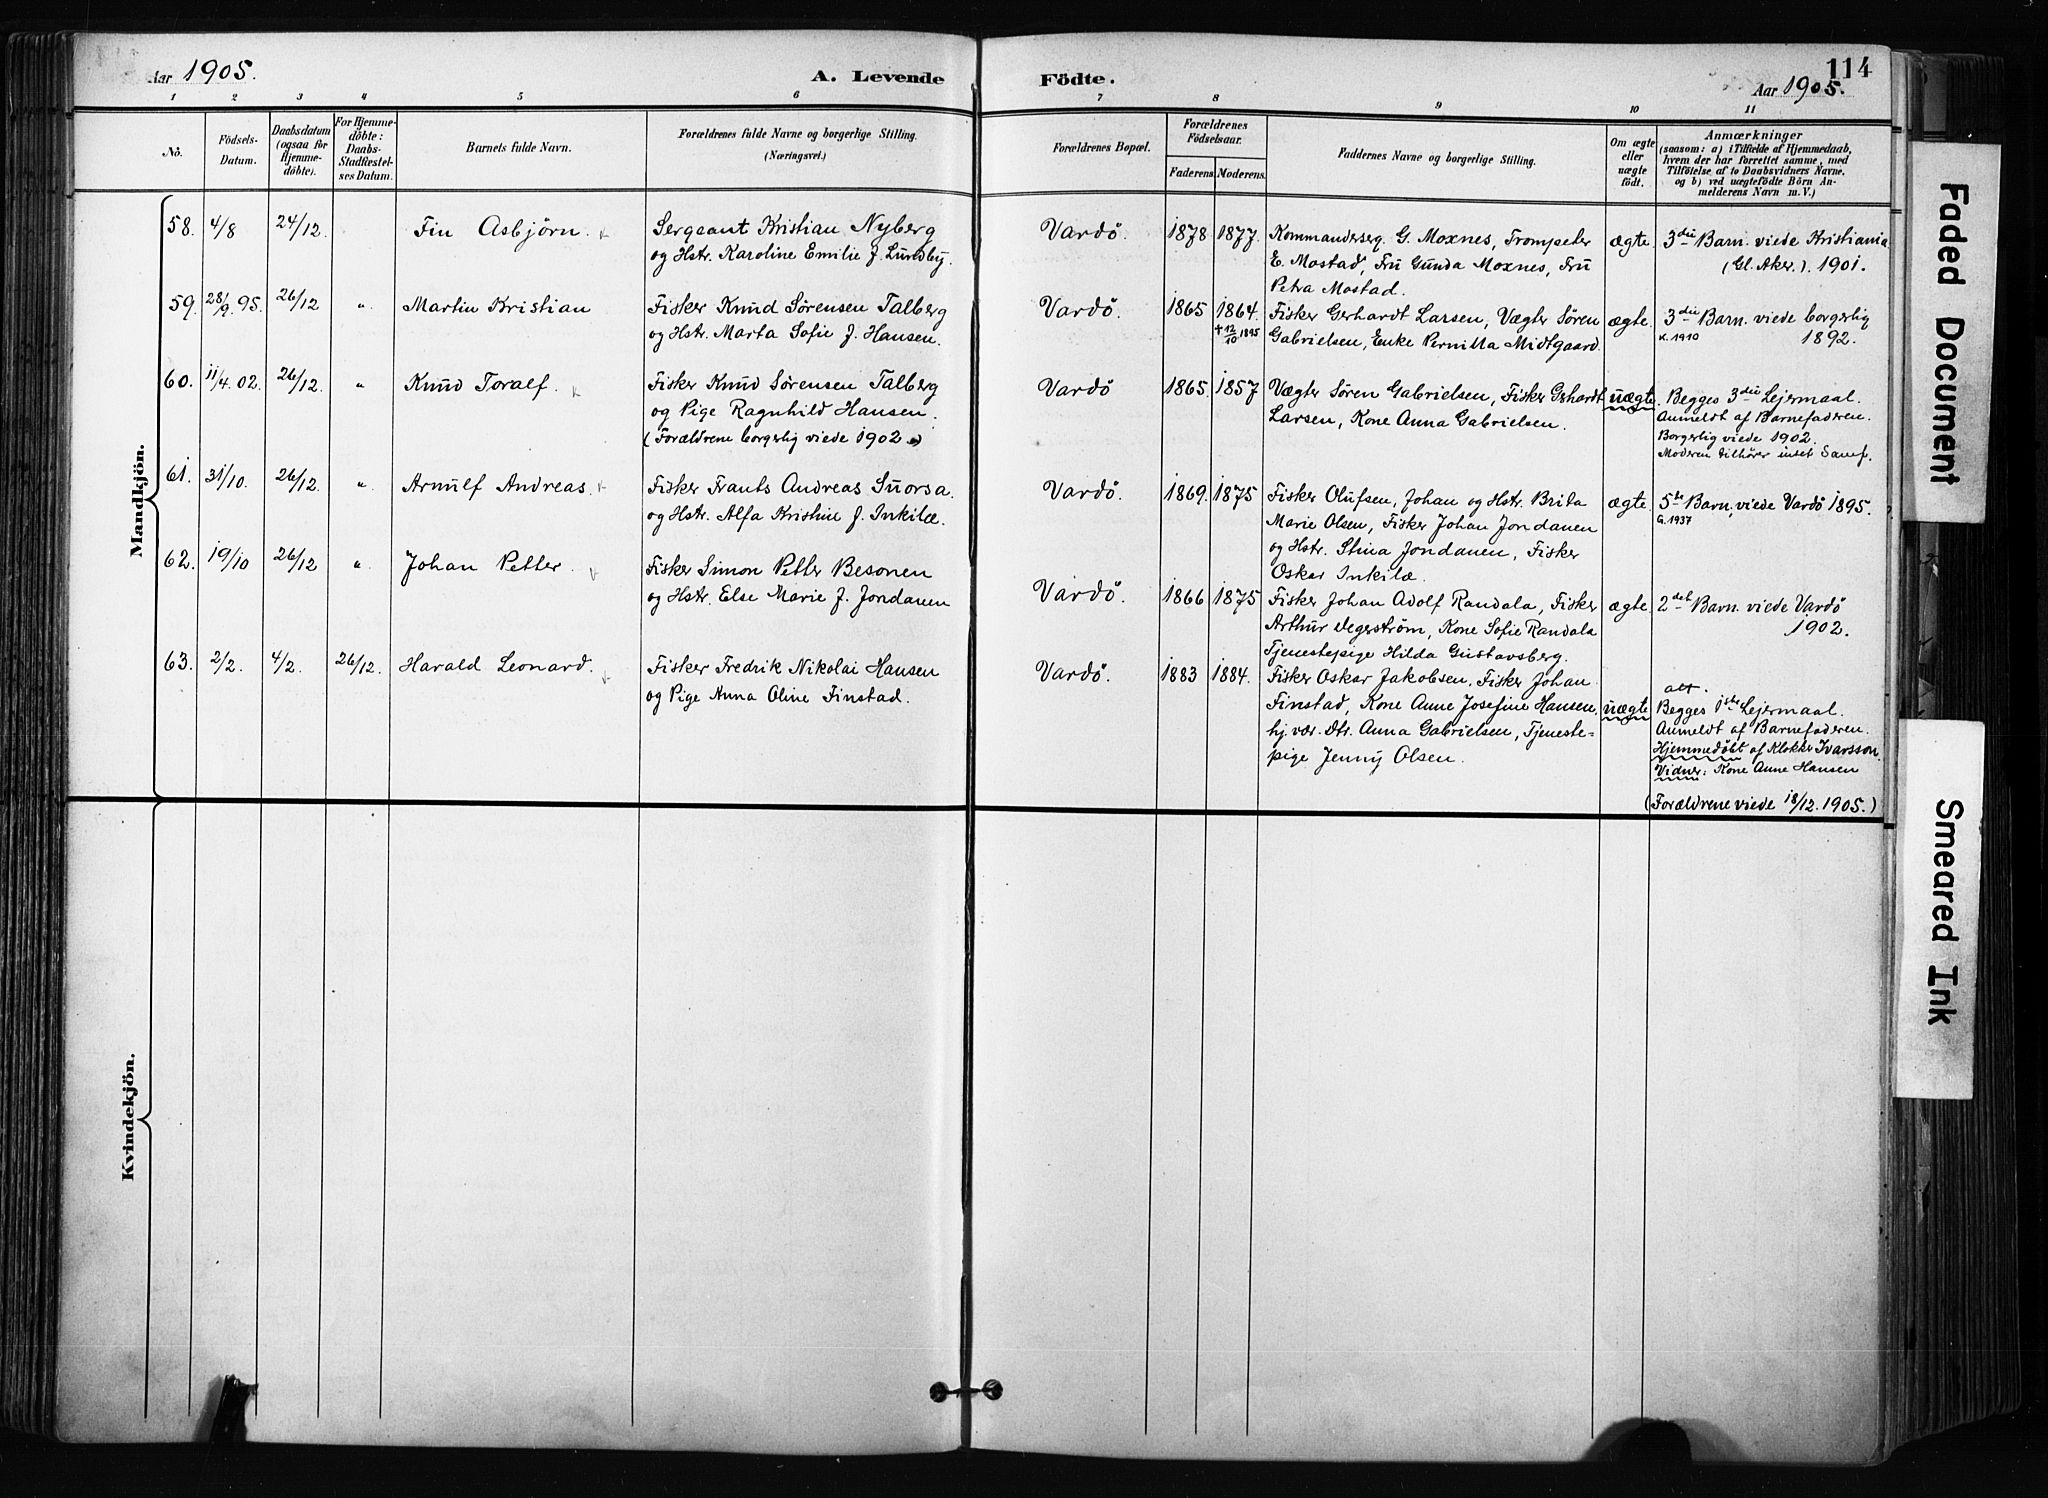 Aar 1905.
A. Levende
Födte.
114
Aar 1905.
1 2 3 4 5 6 7 8 9 10 11
No.
Födsels-
Datum.
Daabsdatum
(ogsaa for
Hjemme-
döbte).
For Hjemme-
döbte:
Daabs-
Stadfæstel-
ses Datum.
Barnets fulde Navn.
Forældrenes fulde Navne og borgerlige Stilling.
(Næringsvei.)
Forældrenes Bopæl.
Forældrenes
Födselsaar.
Faderens. Moderens.
Faddernes Navne og borgerlige Stilling.
Om ægte
eller
uægte
födt.
Anmærkninger
(saasom: a) i Tilfælde af Hjemmedaab,
hvem der har forrettet samme, med
Tilföielse af to Daabsvidners Navne.
og b) ved uægtefödte Börn An-
melderens Navn m. V.)
Mandkjön.
58. 4/8 24/12. Fin Asbjörn
Sergeant Kristian Nyberg
og Hstr. Karoline Emilie f. Lundby.
Vardö. 1878 1877.
Kommanderserg. G. Moxnes, Trompeter
E. Mostad, Fru Gunda Moxnes, Fru
Petra Mostad.
ægte
3die Barn. viede Kristiania
(Gl. Aker.). 1901.
59. 28/9. 95. 26/12 " Martin Kristian
Fisker Knud Sörensen Talberg
og Hstr. Marta Sofie f. Hansen.
Vardö. 1865 1864.
+ 12/10 1895
Fisker Gerhardt Larsen, Vægter Sören
Gabrielsen, Enke Pernilla Midtgaard.
ægte.
3die Barn. viede borgerlig
K. 1910 1892.
60. 11/4. 02. 26/12. " Knud Toralf.
Fisker Knud Sörensen Talberg
og Pige Ragnhild Hansen.
(Forældrene borgerlig viede 1902.)
Vardö 1865. 1857
Vægter Sören Gabrielsen, Fisker Gerhardt
Larsen, Kone Anna Gabrielsen.
uægte.
Begges 3die Lejermaal.
Anmeldt af Barnefaderen.
Borgerlig viede 1902.
Moderen tilhörer inset Samf.
61. 31/10. 26/12. " Arnulf Andreas.
Fisker Frants Andreas Suorsa.
og Hstr. Alfa Kristine f. Inkilæ.
Vardö. 1869. 1875
Fisker Olufsen, Johan og Hstr. Brita
Marie Olsen, Fisker Johan Jondanen
og Hstr. Stina Jondanen, Fisker
Oskar Inkilæ.
ægte.
5te Barn, viede Vardö 1895.
G. 1937
62. 19/10 26/12 " Johan Petter.
Fisker Simon Petter Besonen
og Hstr. Else Marie f. Jondanen
Vardö. 1866 1875
Fisker Johan Adolf Randala, Fisker
Arthur Vegerström, Kone Sofie Randala
Tjenestepige Hilda Gustavsberg.
ægte.
2det Barn. viede Vardö
1902.
63. 2/2. 4/2. 26/12. Harald Leonard.
Fisker Fredrik Nikolai Hansen
og Pige Anna Oline Finstad.
Vardö. 1883 1884.
Fisker Oskar Jakobsen. Fisker Johan
Finstad, Kone Anne Josefine Hansen,
hj. vær. Dtr. Anna Gabrielsen, Tjeneste-
pige Jenny Olsen.
uægte
Begges 1ste Lejermaal.
Anmeldt af Barnefaderen.
Hjemmedöbt af Klokker Ivarsson.
Vidner: Kone Anne Hansen
(Forældrene viede 18/12. 1905.)
Kvindekjön.
Faded Document
Smeared Ink